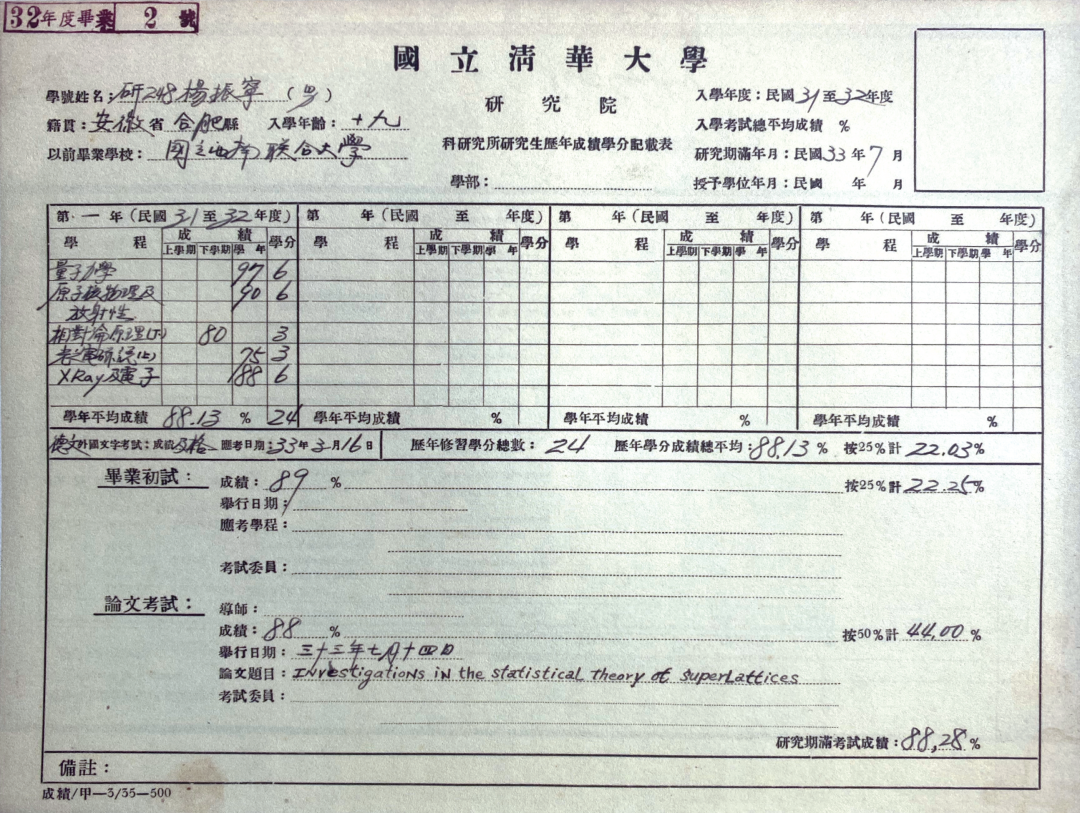 32年度畢業 2 號
國立清華大學
學號姓名：研248楊振寧（男）
研究院
入學年度：民國31至32年度
籍貫：安徽省合肥縣 入學年齡：十九
入學考試總平均成績 %
以前畢業學校：國立西南联合大學
科研究所研究生歷年成績學分記載表
研究期滿年月：民國33年7月
學部：
授予學位年月：民國 年 月
第一年（民國31至32年度） 第 年（民國 至 年度） 第 年（民國 至 年度） 第 年（民國 至 年度）
學程 成績 學分 學程 成績 學分 學程 成績 學分 學程 成績 學分
上學期 下學期 學年 上學期 下學期 學年 上學期 下學期 學年 上學期 下學期 學年
量子力學 97 6
原子核物理及 90 6
放射性
相對論原理(下) 80 3
75 3
XRay及電子 88 6
學年平均成績 88.13 % 24 學年平均成績 % 學年平均成績 % 學年平均成績 %
德文外國文字考試：成績及格 應考日期：33年3月16日 歷年修習學分總數：24 歷年學分成績總平均：88.13 % 按25%計 22.03%
畢業初試： 成績：89 % 按25%計 22.25%
舉行日期：
應考學程：
考試委員：
論文考試： 導師：
成績：88 % 按50%計 44.00 %
舉行日期：三十三年七月十四日
論文題目：Investigations in the statistical theory of superlattices
考試委員：
研究期滿考試成績：88.28 %
備註：
成績/甲—3/35—500